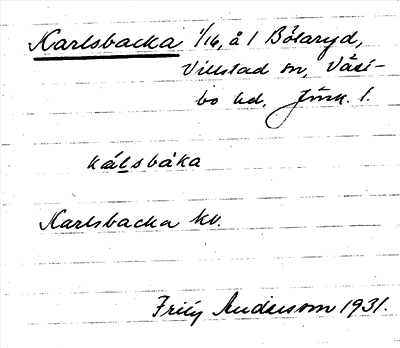 Karlsbacka 1/16, å 1 Bötaryd,
Villstad sn, Väst-
bo hd, Jönk. l.
kálsbáka
Karlsbacka kv.
Andersson 1931.